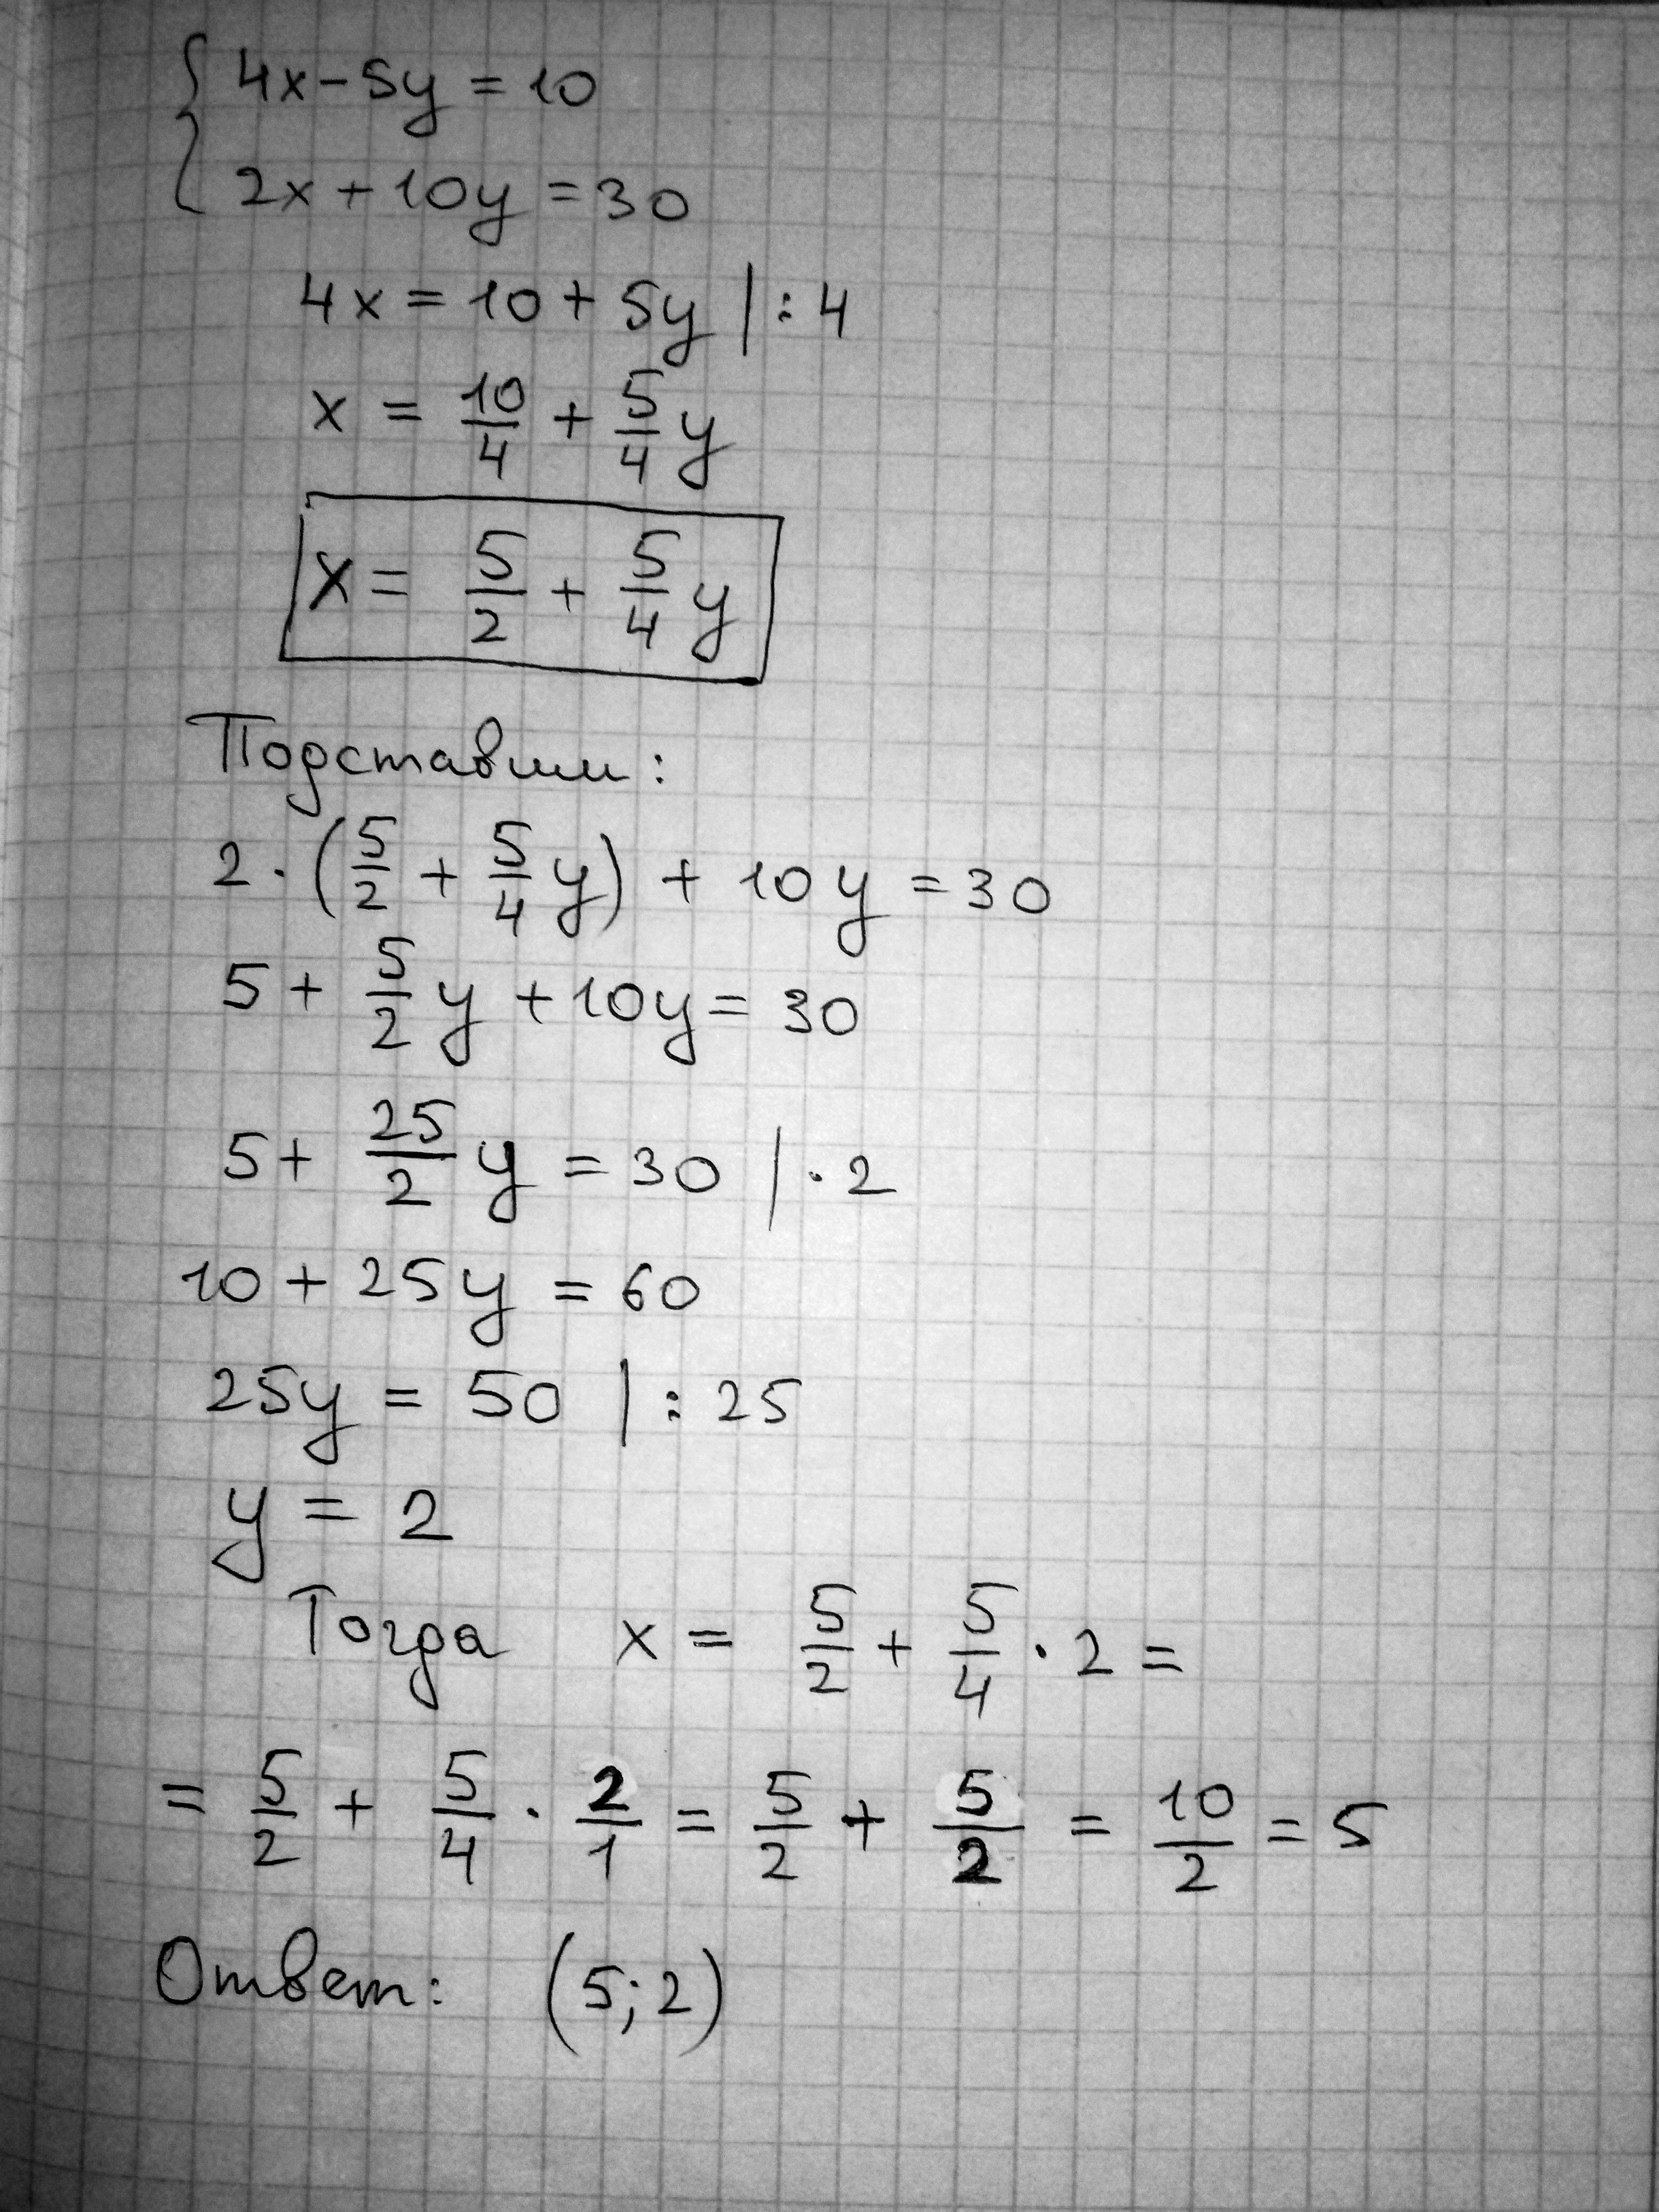 { 4x - 5y = 10
2x + 10y = 30
4x = 10 + 5y | : 4
x = 10/4 + 5/4 y
x = 5/2 + 5/4 y
Подставим:
2 · (5/2 + 5/4 y) + 10y = 30
5 + 5/2 y + 10y = 30
5 + 25/2 y = 30 | · 2
10 + 25y = 60
25y = 50 | : 25
y = 2
Тогда x = 5/2 + 5/4 · 2 =
= 5/2 + 5/4 · 2/1 = 5/2 + 5/2 = 10/2 = 5
Ответ: (5; 2)